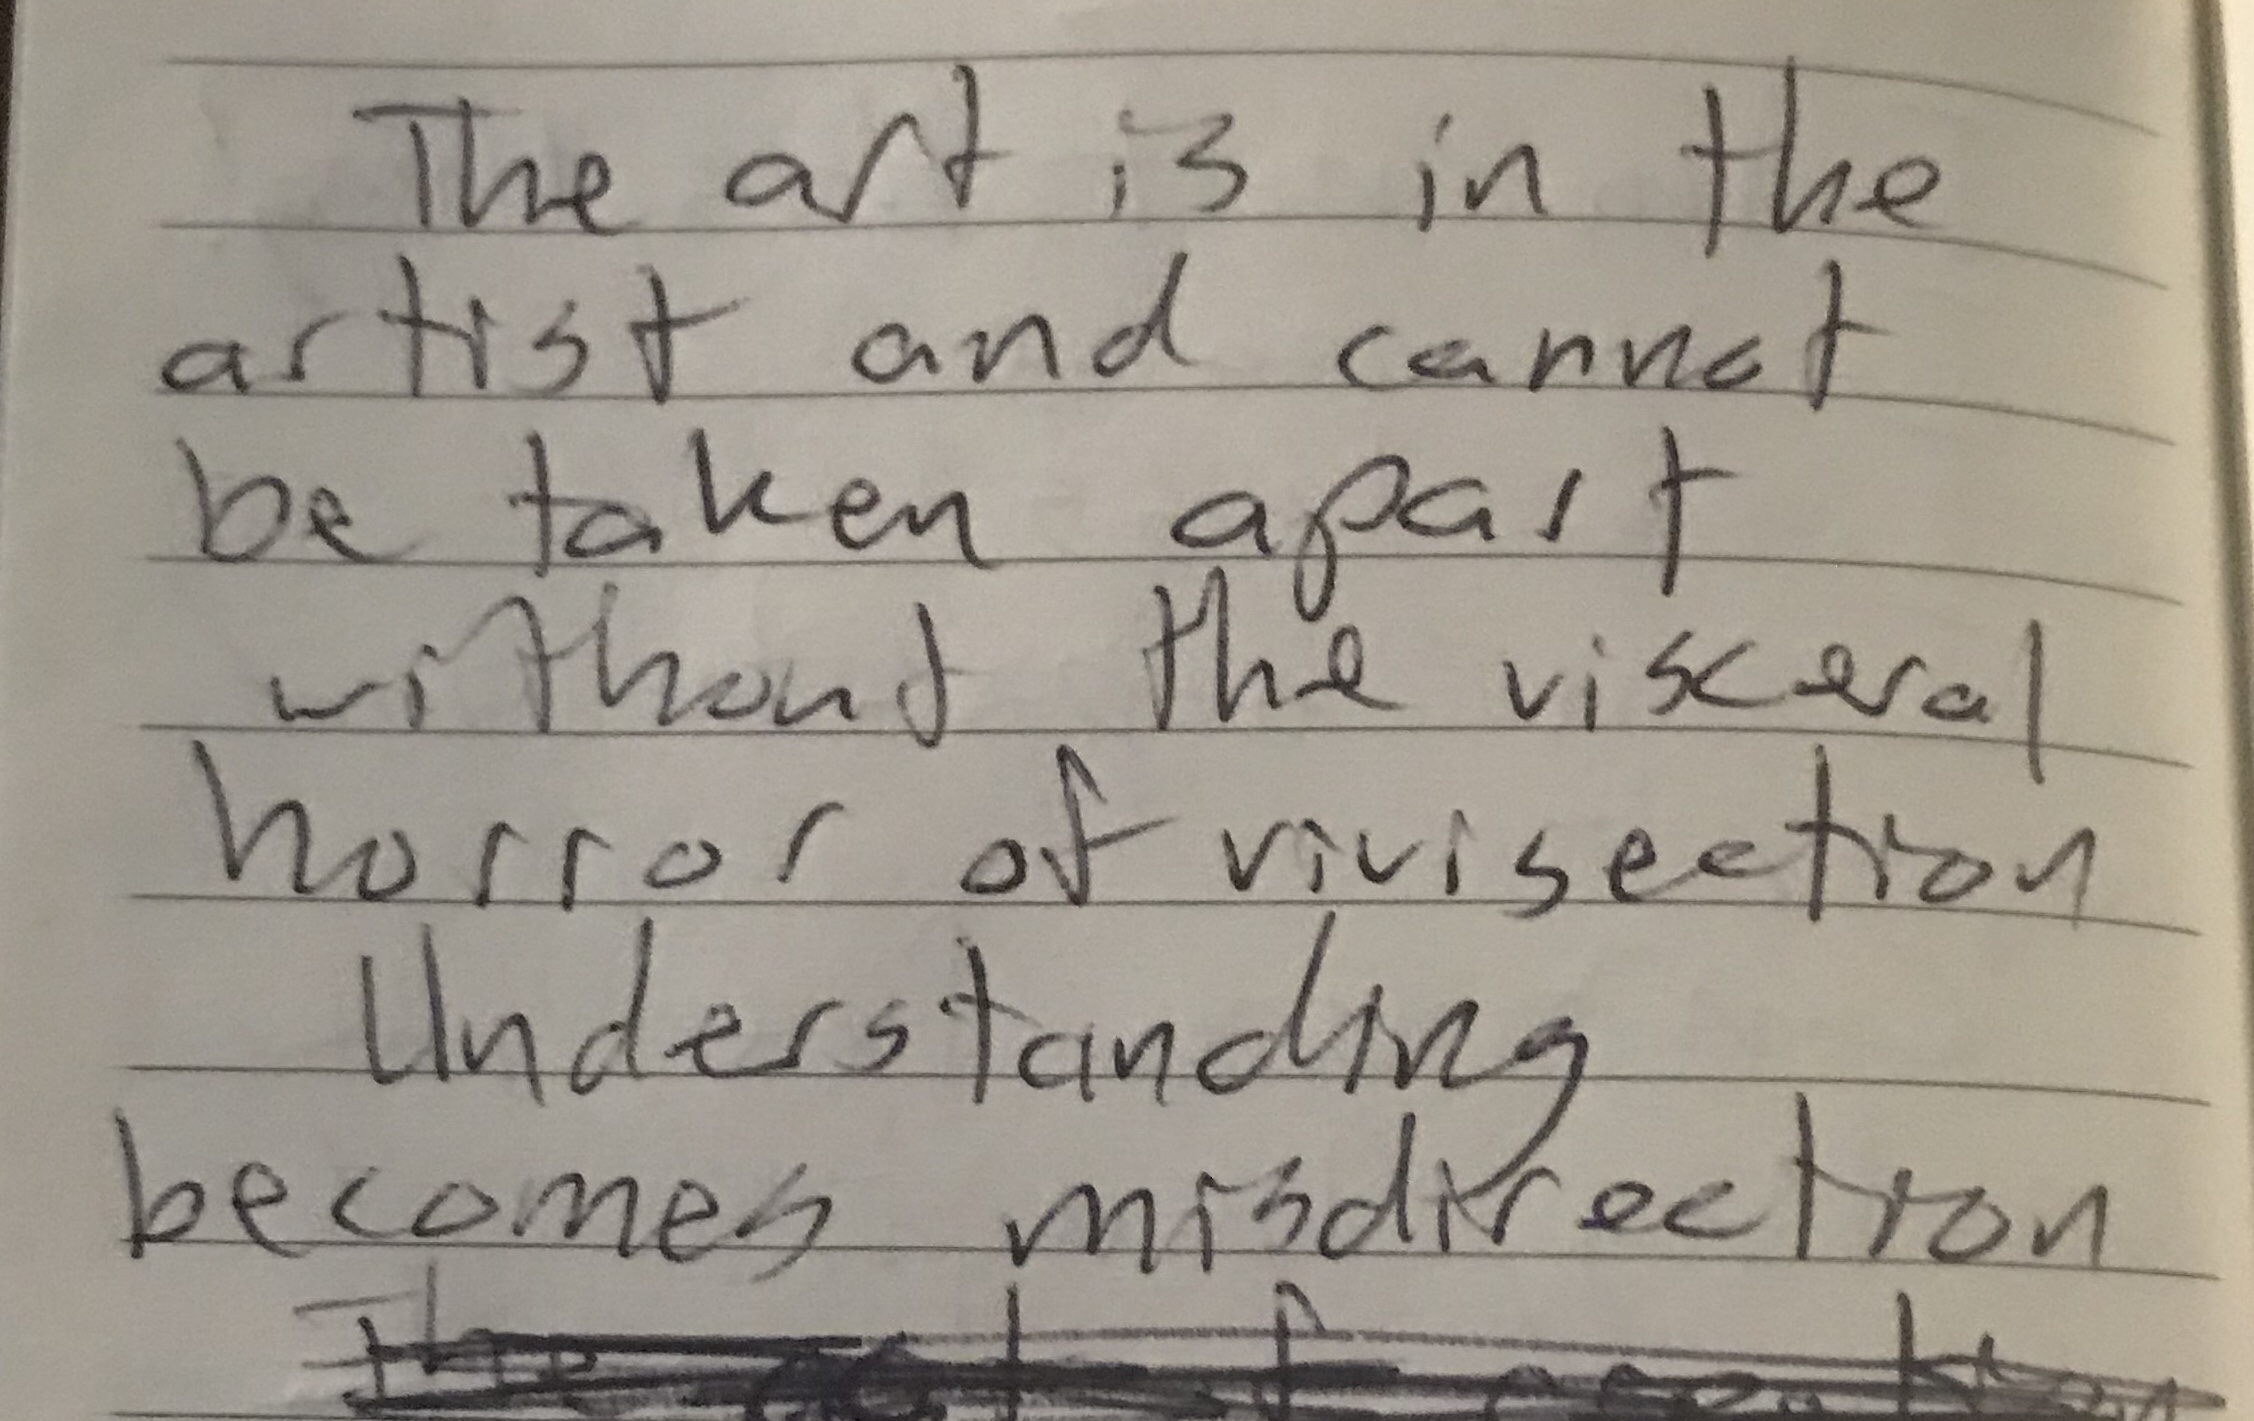 The art is in the
artist and cannot
be taken apart
without the visceral
horror of vivisection
Understanding
becomes misdirection
The